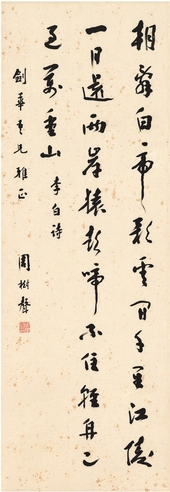 朝辭白帝彩雲間千里江陵
一日還兩岸猿聲啼不住輕舟已
過萬重山 李白詩
劍華吾兄雅正
周樹聲